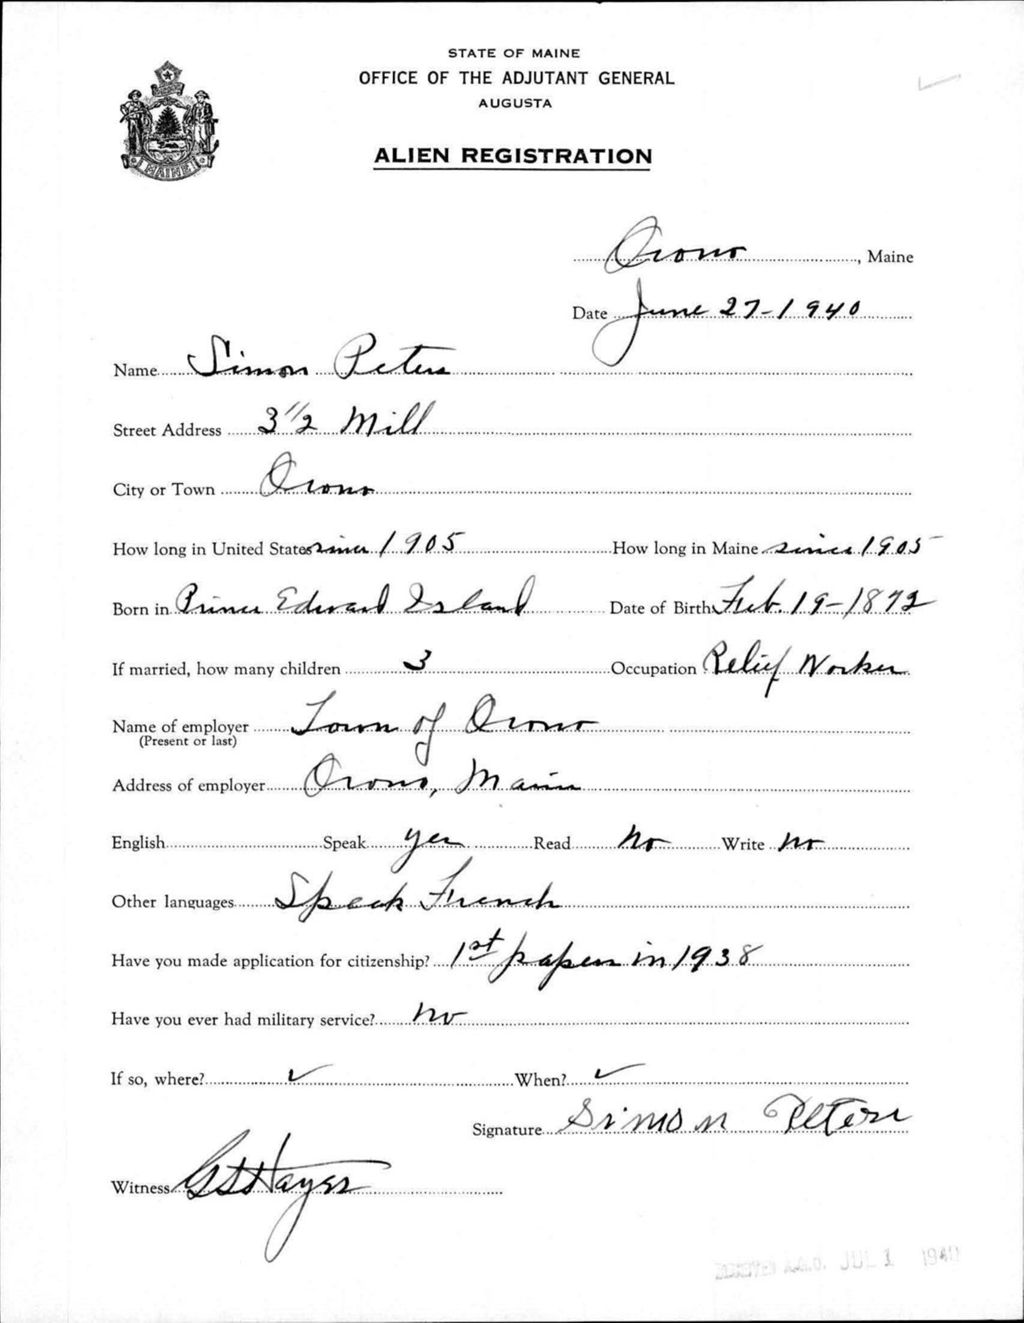 STATE OF MAINE
OFFICE OF THE ADJUTANT GENERAL
AUGUSTA
ALIEN REGISTRATION
MAINE
Orono, Maine
Date June 27-1940
Name Simon Peters
Street Address 3 1/2 Mill
City or Town Orono
How long in United States since 1905 How long in Maine since 1905
Born in Prince Edward Island Date of Birth Feb. 19-1872
If married, how many children 3 Occupation Relief Worker
Name of employer Town of Orono
(Present or last)
Address of employer Orono, Maine
English Speak yes Read No Write No
Other languages Speak French
Have you made application for citizenship? 1st papers in 1938
Have you ever had military service? No
If so, where? ✓ When? ✓
Signature Simon Peters
Witness Hayes
RECEIVED A.G.O. JUL 1 1940